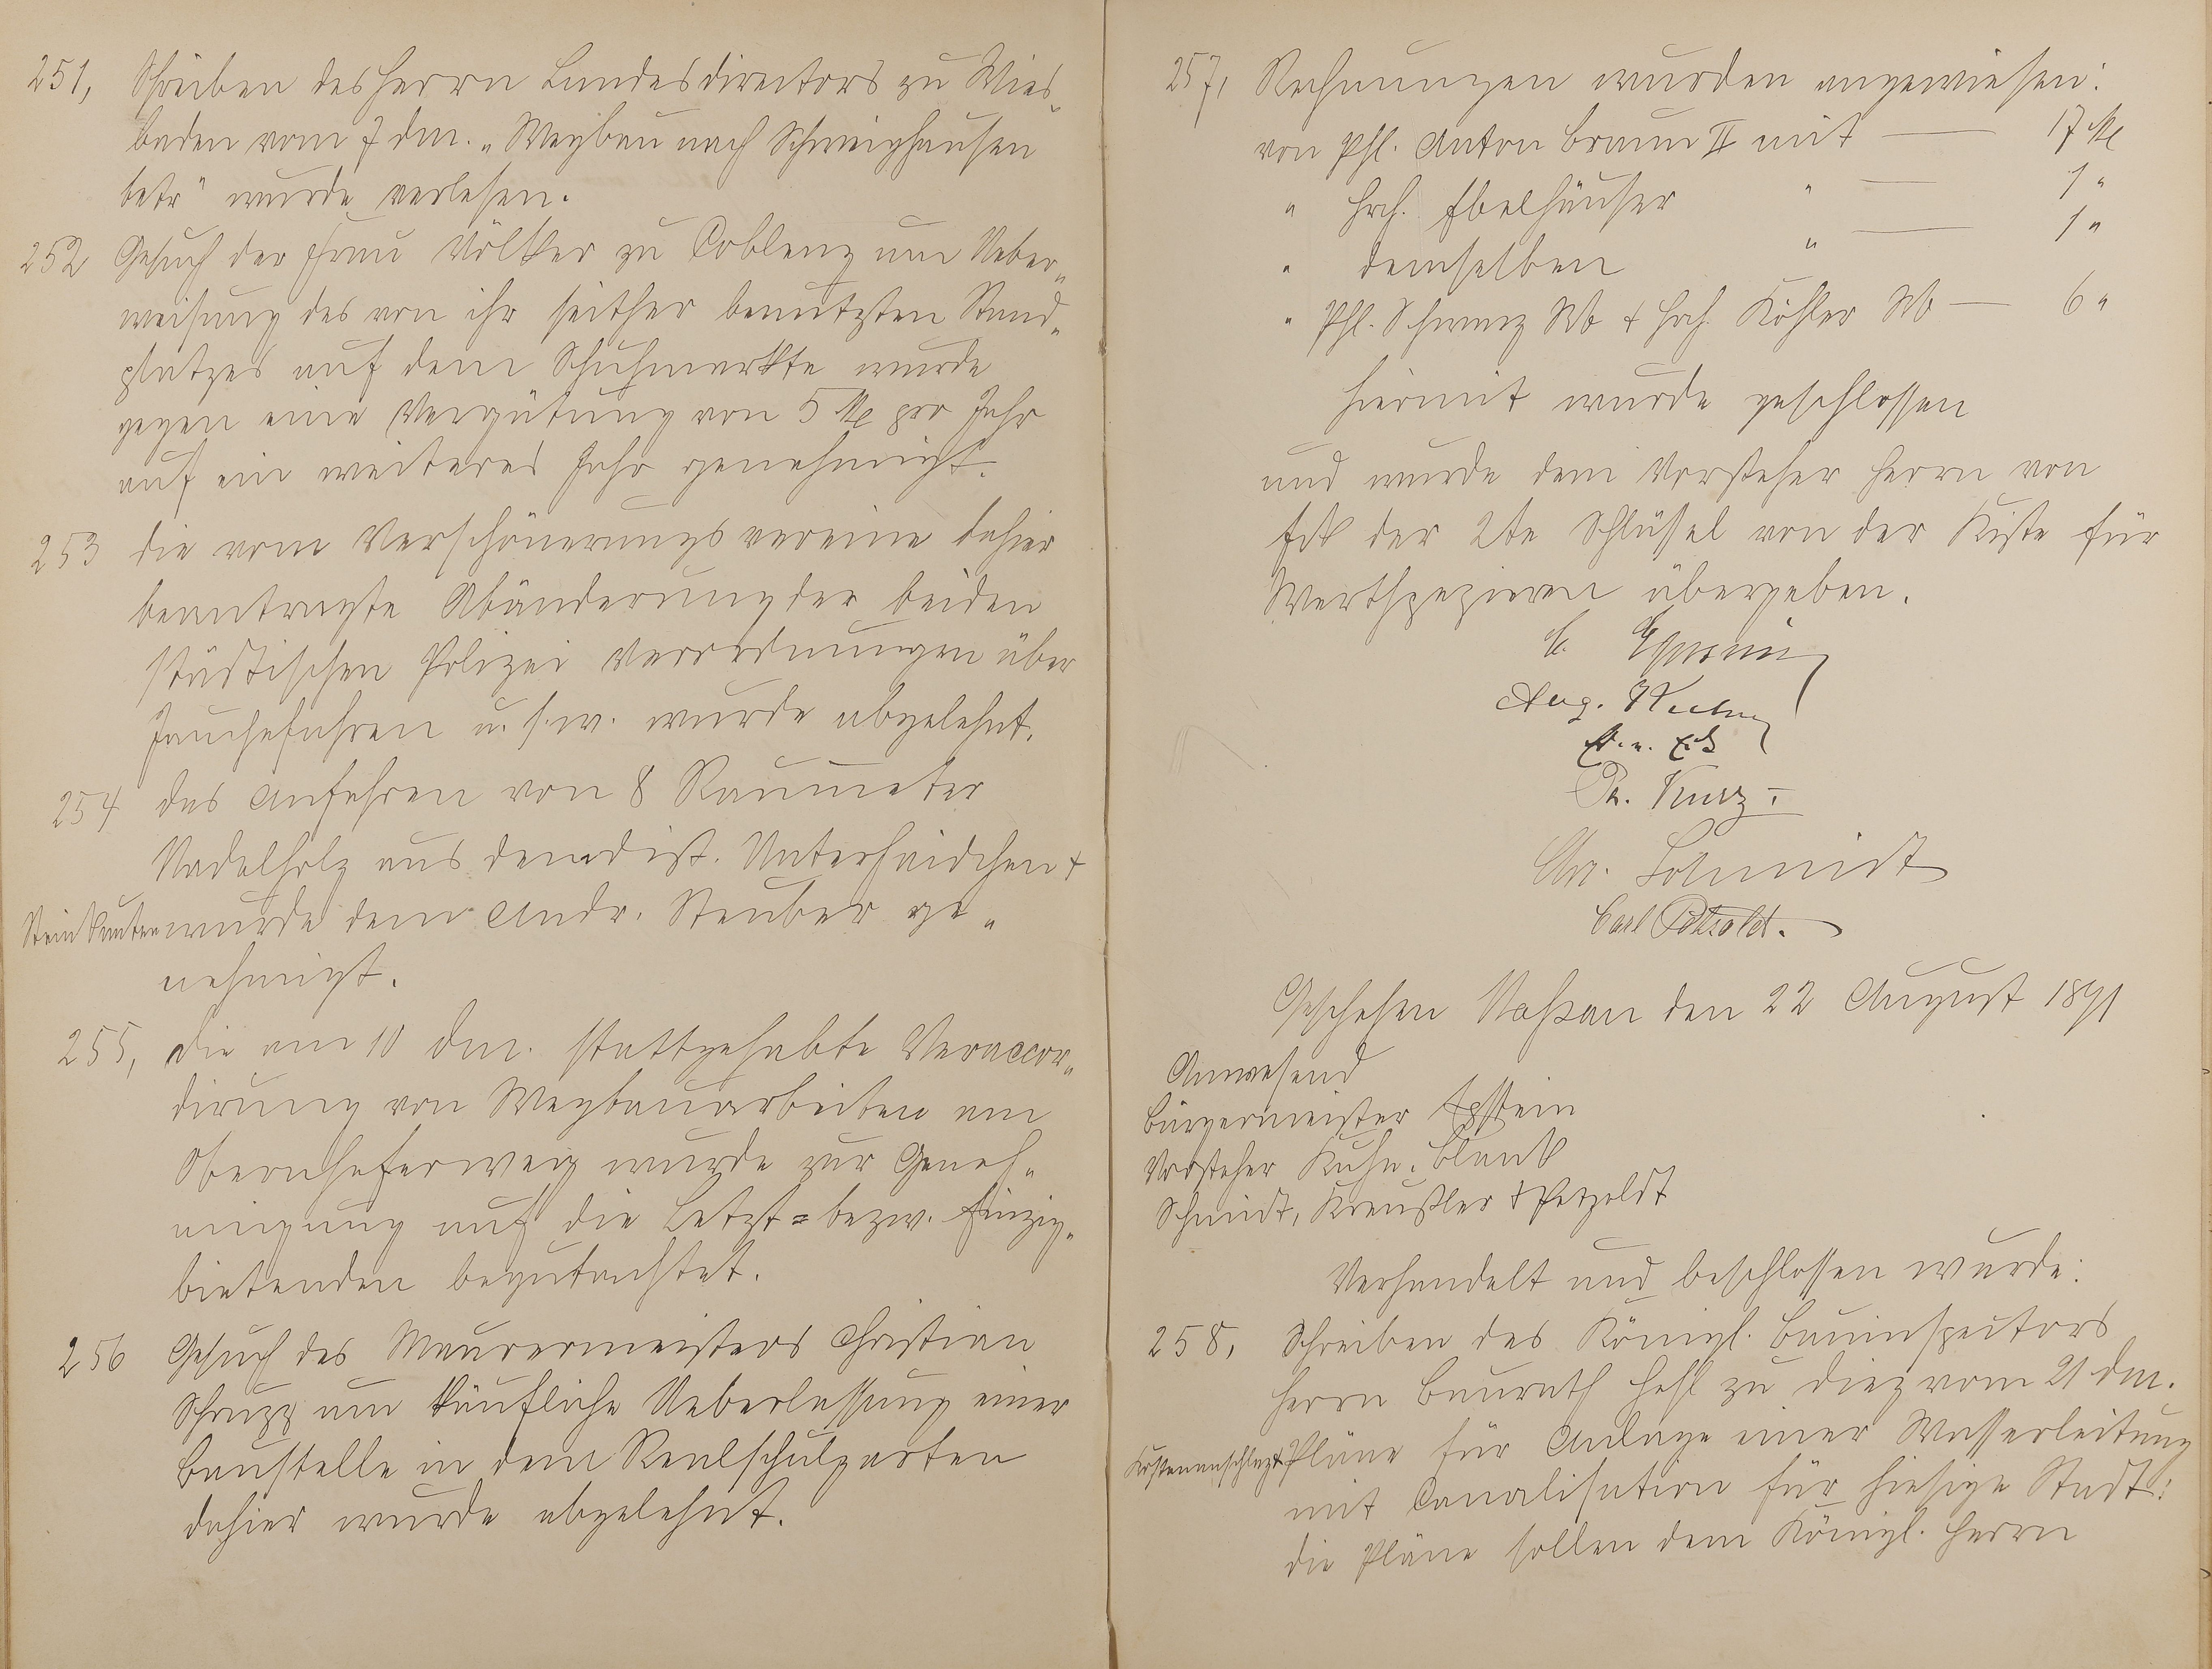 251, Schreiben des Herrn Landesdirectors zu Wies-
baden vom 7 dm. „Wegbau nach Schweighausen
betr" wurde verlesen.
252 Gesuch der Frau Völker zu Coblenz um Ueber„
weisung des von ihr seither benutzten Stand„
platzes auf dem Schuhmarkte wurde
gegen eine Vergütung von 5 M pro Jahr
auf ein weiteres Jahr genehmigt.
253 die vom Verschönerungsvereine dahier
beantragte Abänderung der beiden
städtischen Polizei Verordnungen über
Jauchefahren u. s. w. wurde abgelehnt.
254 das Anfahren von 8 Raummeter
Nadelholz aus dem dist. Unterhaidchen +
Steinkauten wurde dem Andr. Steuber ge„
nehmigt.
255, die am 10 dm. stattgehabte Veraccor„
dirung von Wegbauarbeiten am
Obernhoferweg wurde zur Geneh„
migung auf die Letzt= bezw. Einzig„
bietenden begutachtet.
256 Gesuch des Maurermeisters Christian
Schrupp um käufliche Ueberlassung einer
Baustelle in dem Realschulgarten
dahier wurde abgelehnt.
257, Rechnungen wurden angewiesen:
von Phl. Anton Braun II mit — 17 M
" Hrch. Ebelhäuser " — 1 "
" demselben " — 1 "
" Phl. Schwarz Wb + Hrch. Köhler Wb — 6 "
Hiermit wurde geschlossen
und wurde dem Vorsteher Herrn von
Eck der 2te Schlüssel von der Kiste für
Werthpapieren übergeben.
Aug. Kuhn
E. v. Eck
Ph. Kurz
Chr. Schmidt
Carl Petzoldt.
Geschehen Naßau den 22 August 1891
Anwesend
Bürgermeister Epstein
Vorsteher Kuhn, Blank
Schmidt, Kreußler + Petzoldt
Verhandelt und beschlossen wurde:
258, Schreiben des Königl. Bauinspectors
Herrn Baurath Hehl zu Diez vom 21 dm.
Kostenanschlag + Pläne für Anlage einer Wasserleitung
mit Canalisation für hiesige Stadt:
die Pläne sollen dem Königl. Herrn